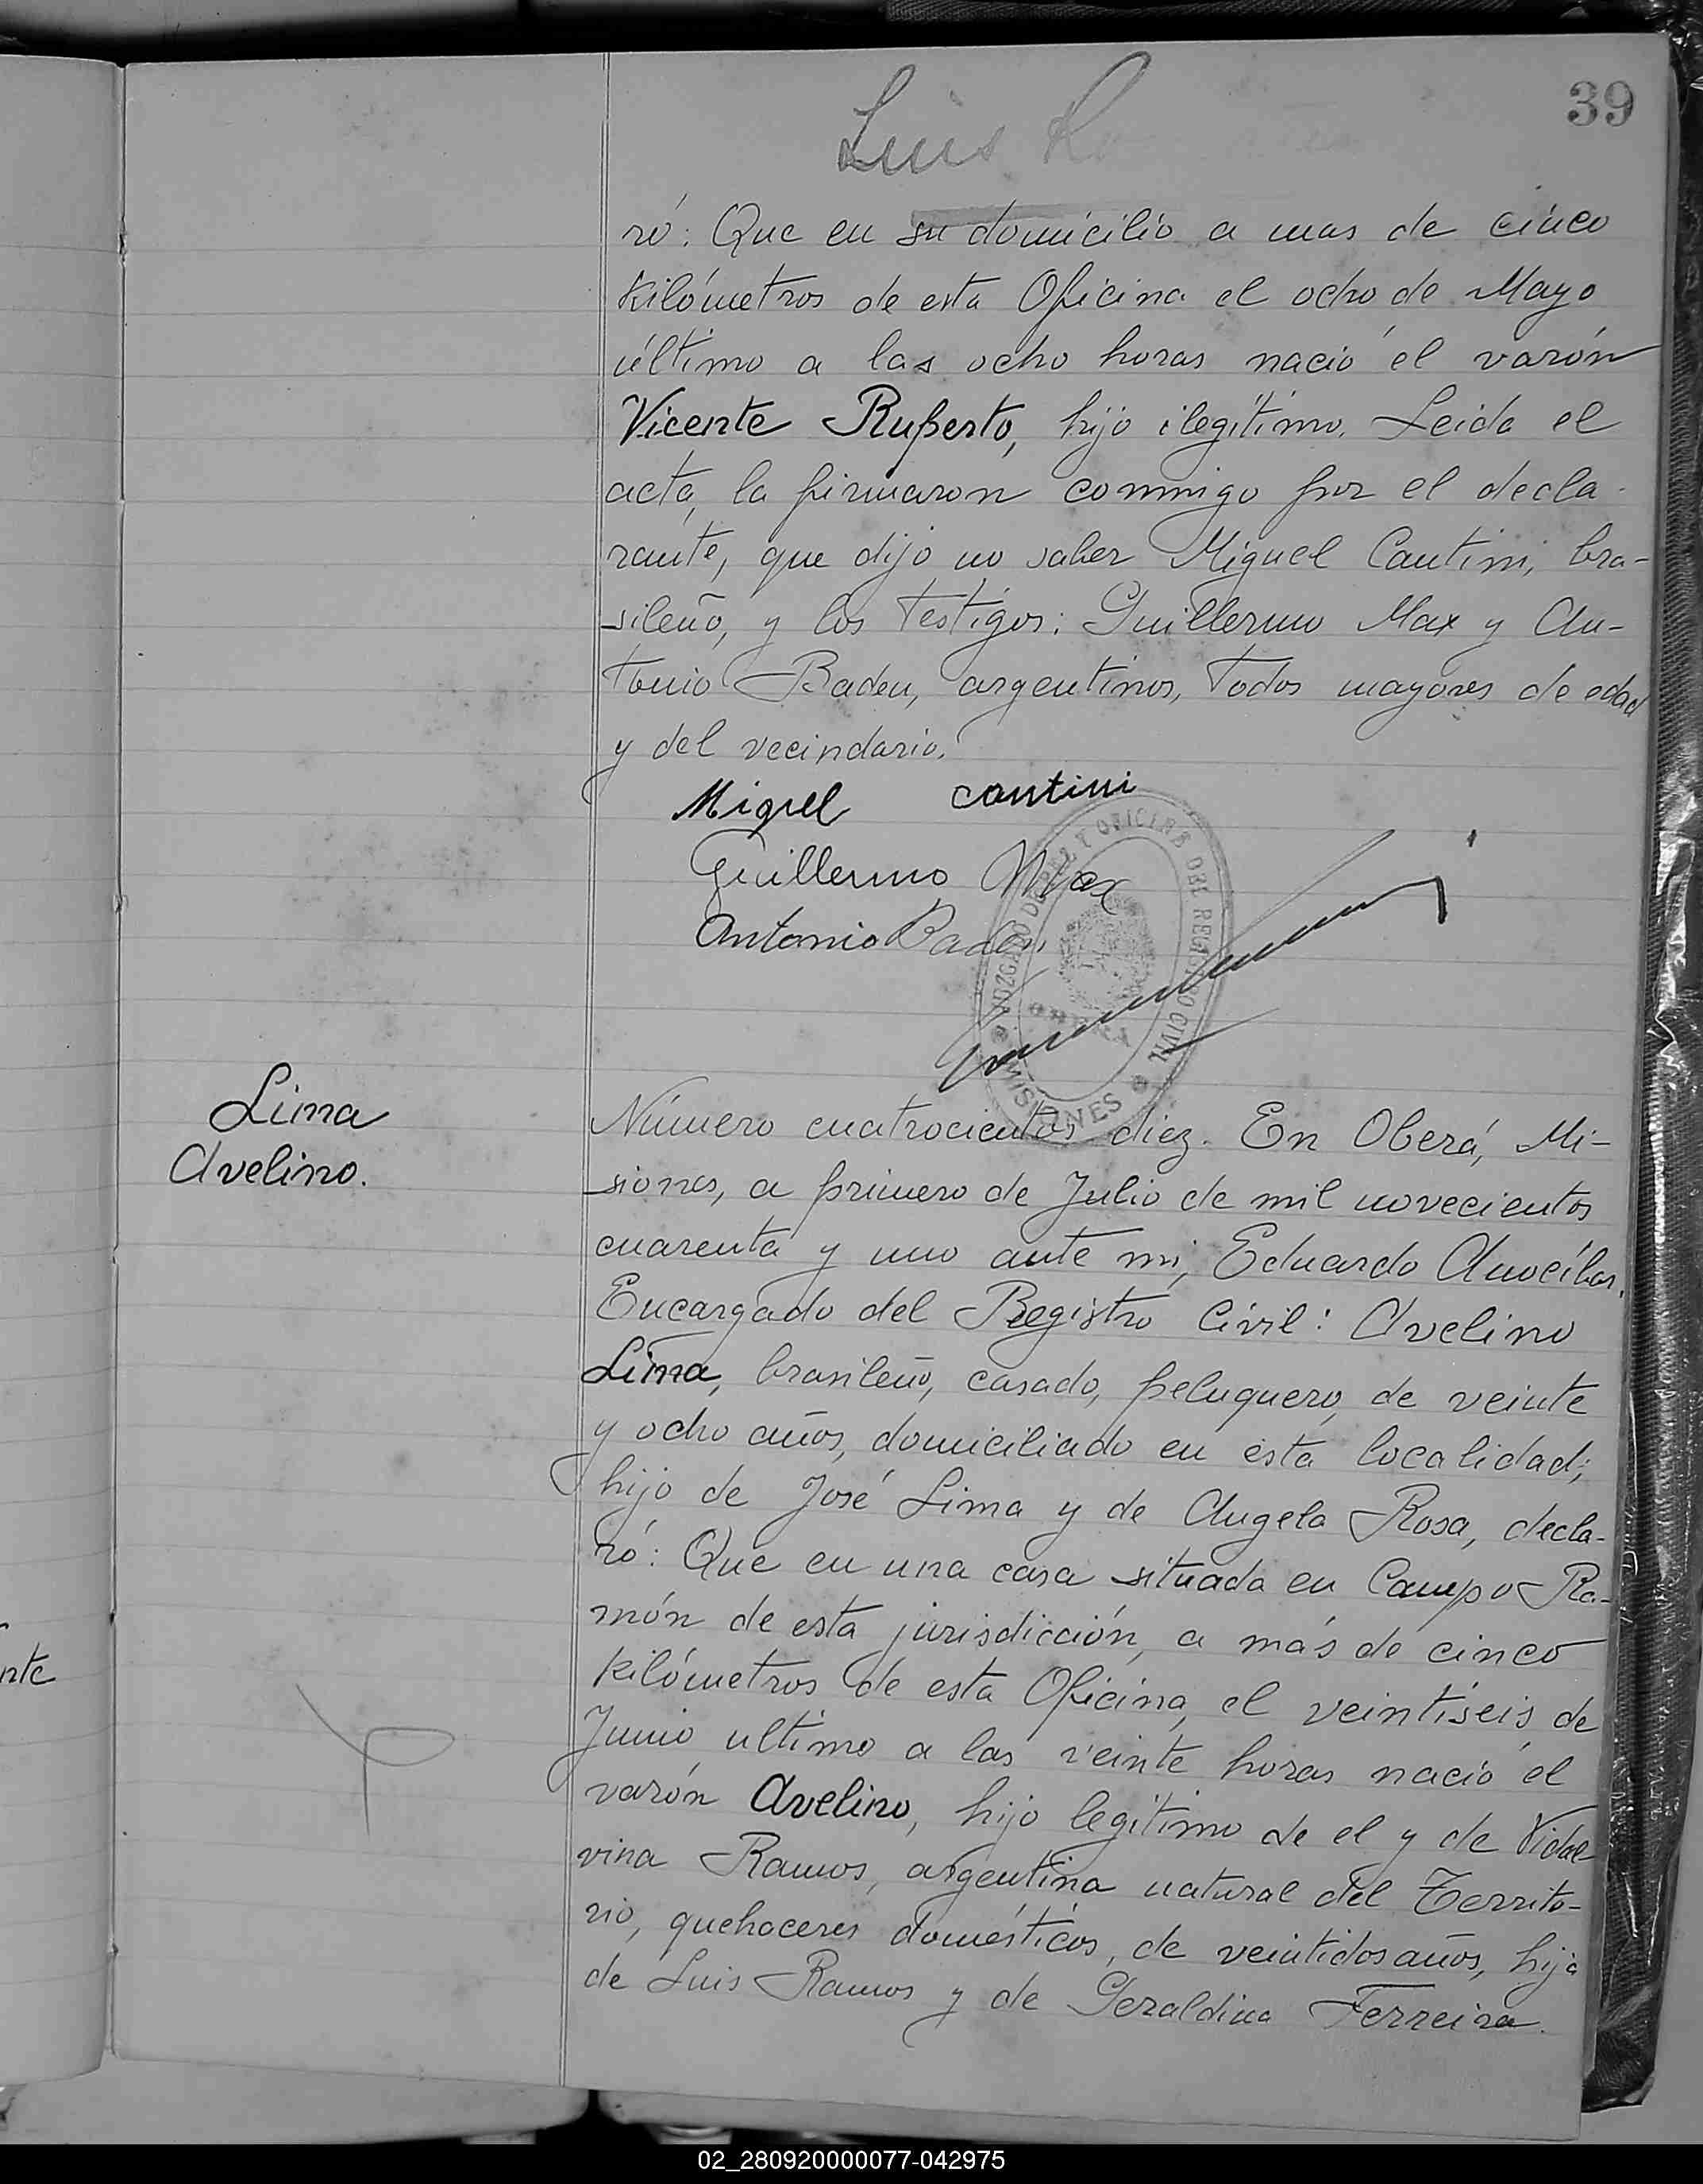 39
Luis
ró: Que en su domicilio a mas de cinco
kilómetros de esta Oficina el ocho de Mayo
último a las ocho horas nació el varón
Vicente Ruperto, hijo ilegítimo. Leida el
acta, la firmaron conmigo por el decla-
rante, que dijo no saber Miguel Cantini, bra-
sileño, y los testigos: Guillermo Max y An-
tonio Baden, argentinos, todos mayores de edad
y del vecindario.
Miguel cantini
Guillermo Max
Antonio Baden
JUZGADO DE PAZ Y OFICINA DEL REGISTRO CIVIL
OBERA
MISIONES
Lima
Avelino.
Número cuatrocientos diez. En Oberá, Mi-
siones, a primero de Julio de mil novecientos
cuarenta y uno ante mi, Eduardo
Encargado del Registro Civil: Avelino
Lima, brasileño, casado, peluquero, de veinte
y ocho años, domiciliado en esta localidad;
hijo de José Lima y de Angela Rosa, decla-
ró: Que en una casa situada en Campo Ra-
món de esta jurisdicción, a más de cinco
kilómetros de esta Oficina, el veintiseis de
Junio ultimo a las veinte horas nació el
varón Avelino, hijo legitimo de el y de Vidal
vina Ramos, argentina natural del Territo-
rio, quehaceres domésticos, de veintidos años, hija
de Luis Ramos y de Geraldina Ferreira.
nte
02_280920000077-042975